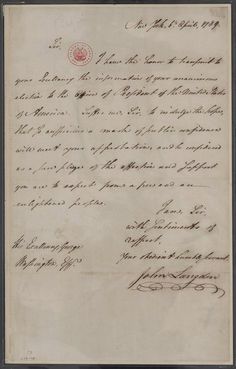 New York 6th April, 1789.
Sir,
I have the honor to transmit to
your Excellency the information of your unanimous
election to the Office of President of the United States
of America. Suffer me, Sir, to indulge the hope,
that so auspicious a mark of public confidence
will meet your approbation, and be considered
as a sure pledge of the affection and support
you are to expect from a free and an
enlightened people.
I am, Sir,
with Sentiments of
respect,
Your obedient humble Servant,
John Langdon
His Excellency George
Washington, Esqr.